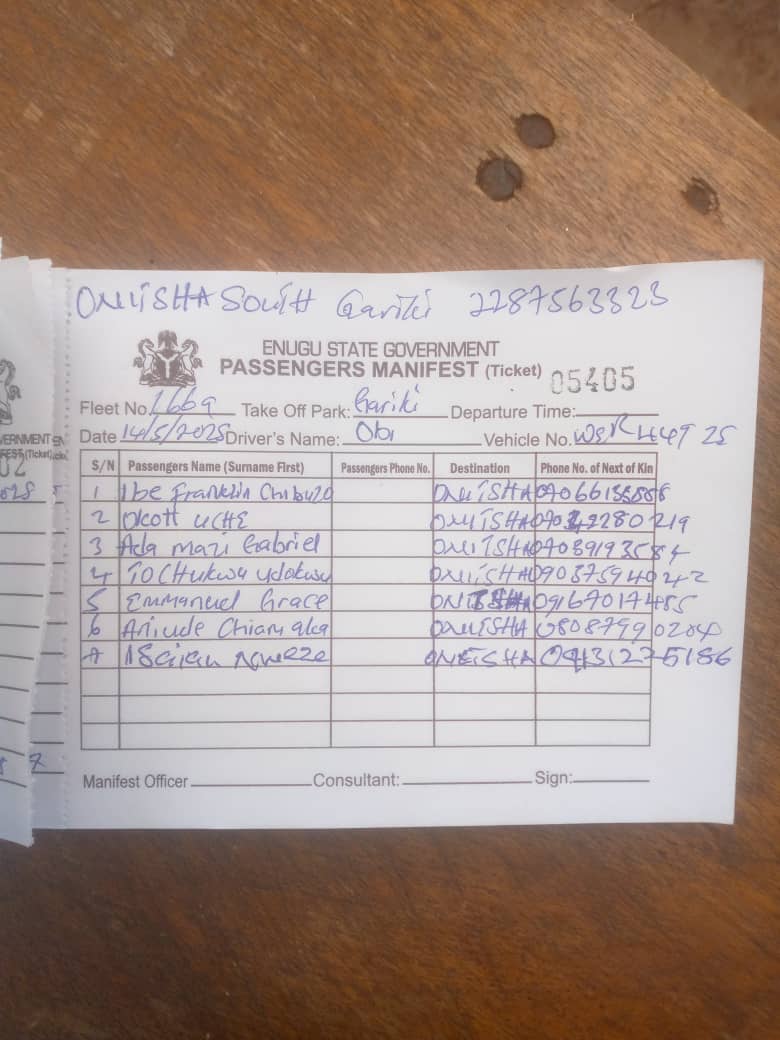 ONITSHA SOUTH Gariki 2287563323
ENUGU STATE GOVERNMENT
PASSENGERS MANIFEST (Ticket) 05405
Fleet No. 1669 Take Off Park: Gariki Departure Time:
Date 14/5/2025 Driver's Name: Obi Vehicle No.
S/N Passengers Name (Surname First) Passengers Phone No. Destination Phone No. of Next of Kin
1 Ibe Franklin ONITSHA
2 Okott UCHE ONITSHA
3 Ada mazi Gabriel ONITSHA 07039193584
4 TOCHUKWU Udokwu ONITSHA 09037594042
5 Emmanuel Grace ONITSHA 09167017485
6 Aniude Chiamaka ONITSHA 08087990204
7 ONITSHA 09131275186
Manifest Officer Consultant: Sign: